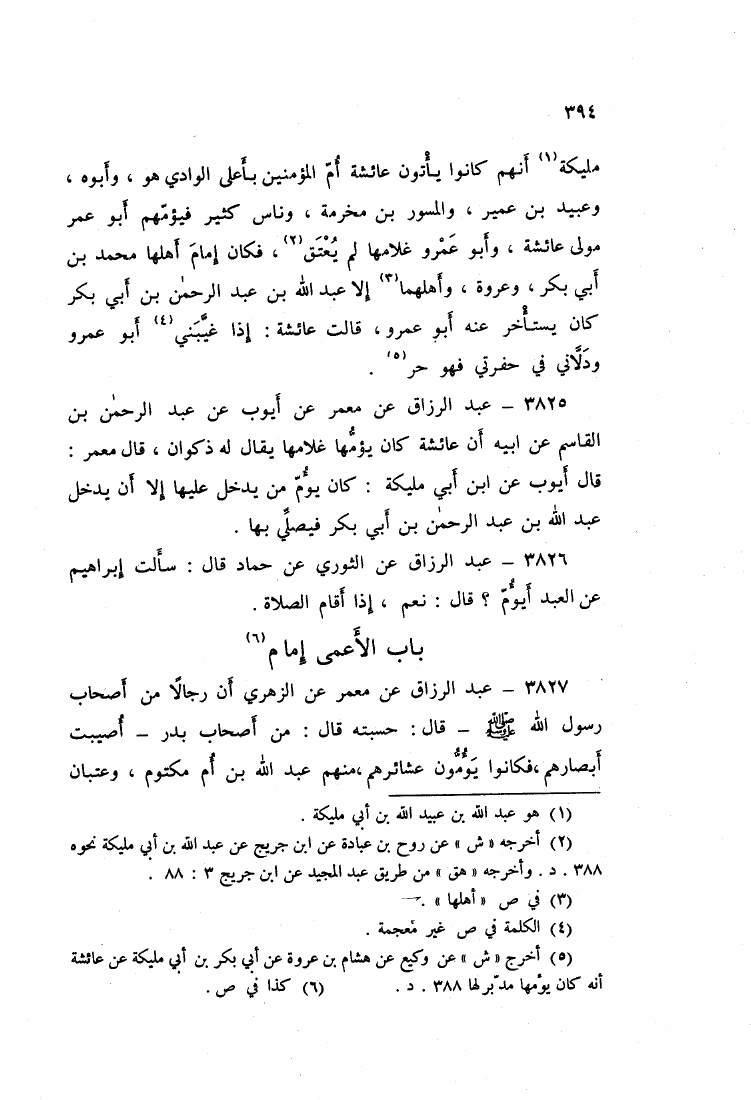 ٣٩٤
مليكة(١) أنهم كانوا يأْتون عائشة أُمّ المؤمنين بأَعلى الوادي هو ، وأَبوه ،
وعبيد بن عمير ، والمسور بن مخرمة ، وناس كثير فيؤمّهم أَبو عمر
مولى عائشة ، وأَبو عَمْرو غلامها لم يُعْتَق(٢) ، فكان إمامَ أَهلها محمد بن
أَبي بكر ، وعروة ، وأَهلهما(٣) إلا عبد الله بن عبد الرحمٰن بن أَبي بكر
كان يستأْخر عنه أَبو عمرو ، قالت عائشة : إذا غيَّبَني(٤) أَبو عمرو
ودَلَّاني في حفرتي فهو حر(٥) .
٣٨٢٥ – عبد الرزاق عن معمر عن أَيوب عن عبد الرحمٰن بن
القاسم عن ابيه أَن عائشة كان يؤمُّها غلامها يقال له ذكوان ، قال معمر :
قال أَيوب عن ابن أَبي مليكة : كان يؤُمّ من يدخل عليها إلا أَن يدخل
عبد الله بن عبد الرحمٰن بن أَبي بكر فيصلِّي بها .
٣٨٢٦ – عبد الرزاق عن الثوري عن حماد قال : سأَلت إبراهيم
عن العبد أَيؤُمّ ؟ قال : نعم ، إذا أَقام الصلاة .
باب الأَعمى إمام(٦)
٣٨٢٧ – عبد الرزاق عن معمر عن الزهري أَن رجالًا من أَصحاب
رسول الله ﷺ – قال : حسبته قال : من أَصحاب بدر – أُصيبت
أَبصارهم ،فكانوا يَؤُمُّون عشائرهم ،منهم عبد الله بن أُم مكتوم ، وعتبان
(١) هو عبد الله بن عبيد الله بن أبي مليكة .
(٢) أخرجه « ش » عن روح بن عبادة عن ابن جريج عن عبد الله بن أبي مليكة نحوه
٣٨٨ . د . وأخرجه « هق » من طريق عبد المجيد عن ابن جريج ٣ : ٨٨ .
(٣) في ص « أهلها » .
(٤) الكلمة في ص غير مُعجمة .
(٥) أخرج « ش » عن وكيع عن هشام بن عروة عن أبي بكر بن أبي مليكة عن عائشة
أنه كان يؤْمها مدّبر لها ٣٨٨ . د . (٦) كذا في ص .